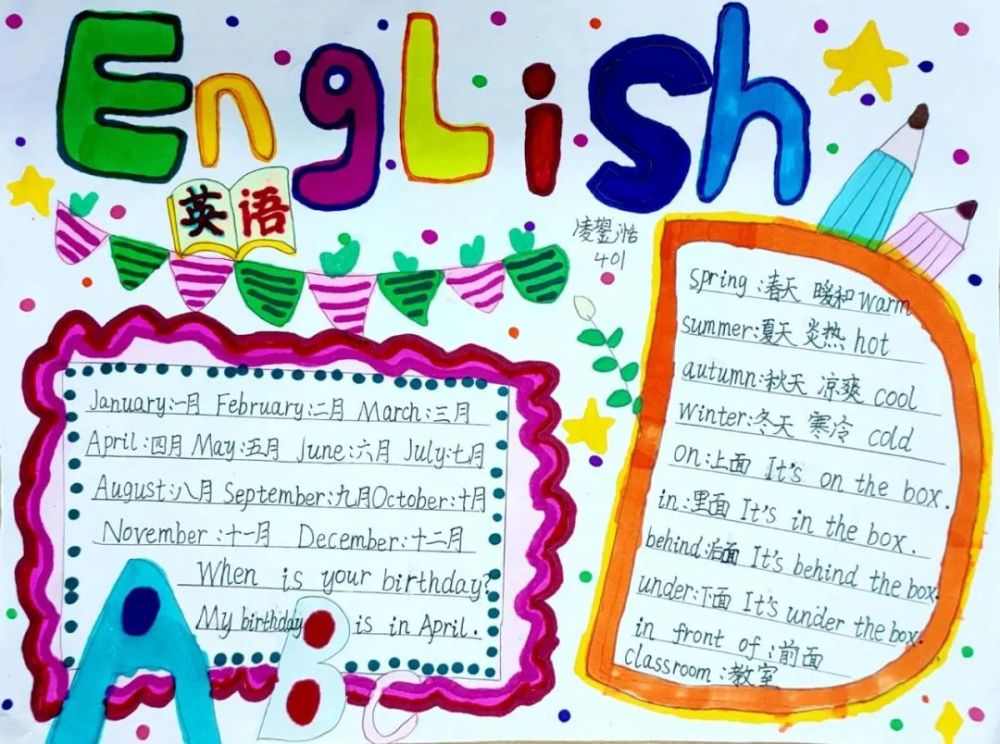 EngLish
英语
凌翌浩
401
January:一月 February:二月 March:三月
April:四月 May:五月 June:六月 July:七月
August:八月 September:九月October:十月
November:十一月 December:十二月
When is your birthday?
My birthday is in April.
ABC
spring:春天 暖和warm
summer:夏天 炎热 hot
autumn:秋天 凉爽 cool
winter:冬天 寒冷 cold
on:上面 It's on the box.
in:里面 It's in the box.
behind:后面 It's behind the box.
under:下面 It's under the box.
in front of:前面
classroom:教室